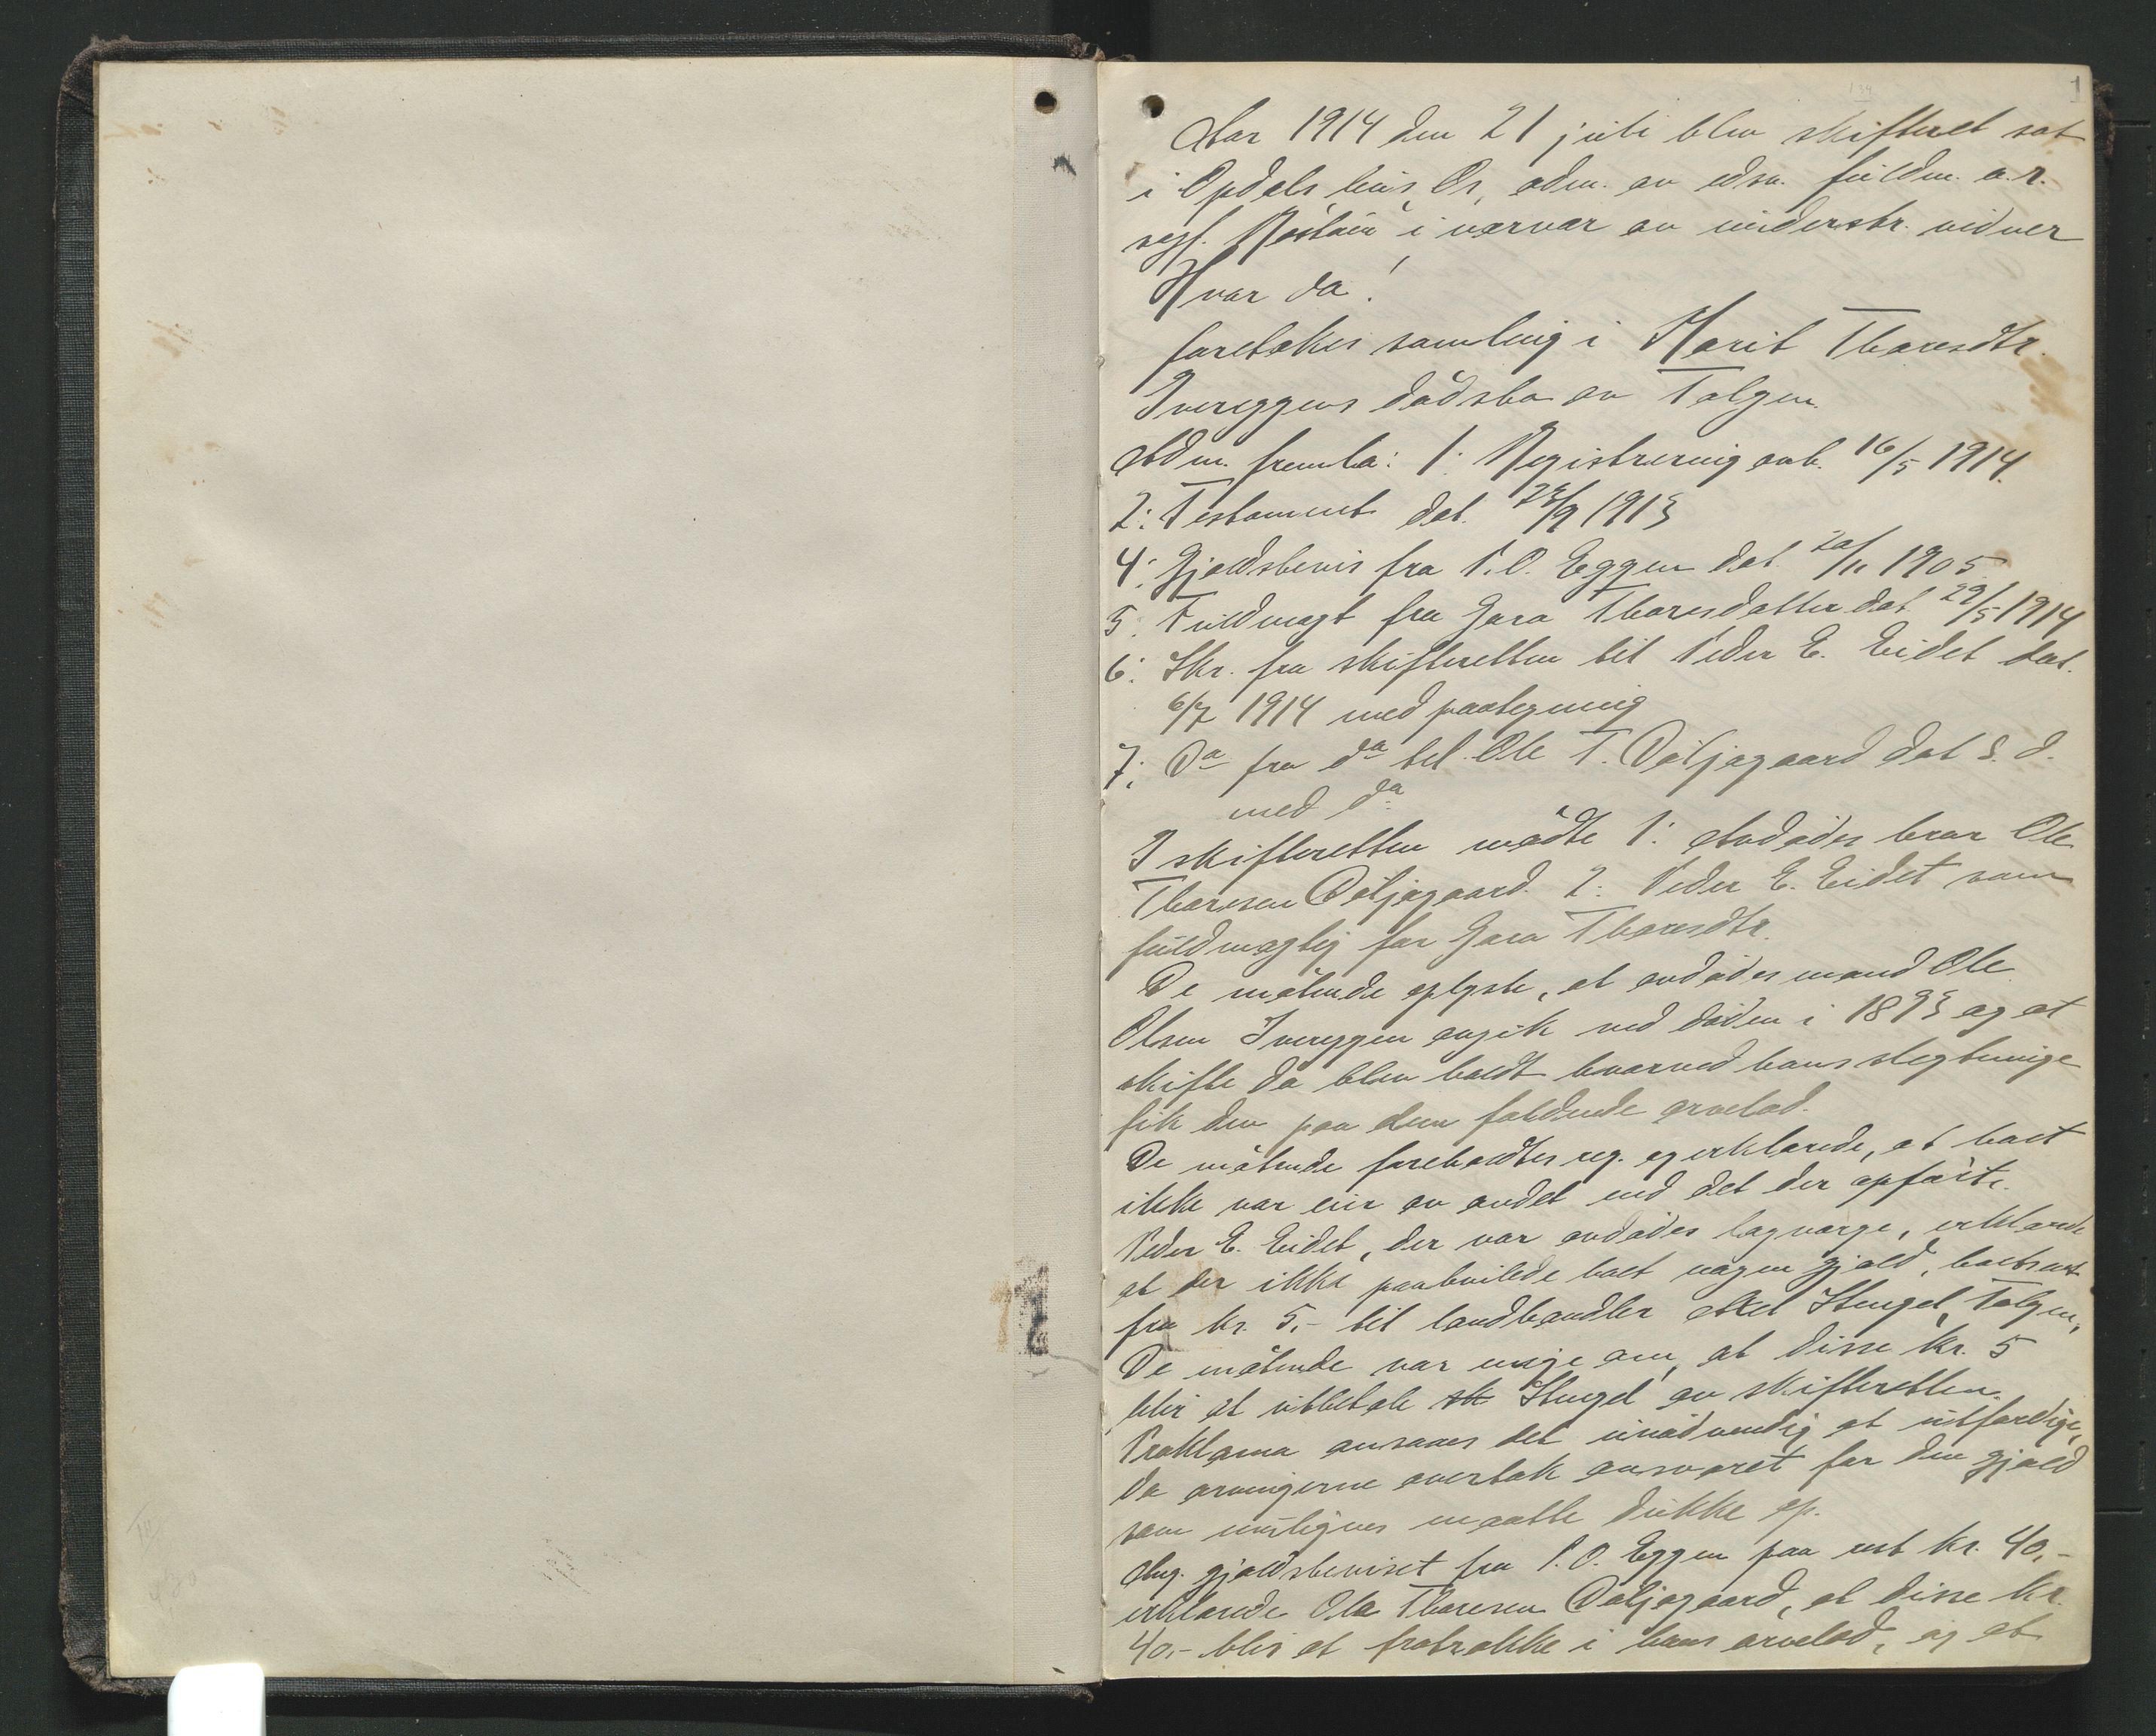 1
Aar 1914 den 21 juli blev skifteret sat
i Opdals hus, Os, adm. av edsv. fuldm. o.r.
sagf. Røstau i nærvær av underskr. vidner
Hvor da!
foretokes samling i Marit Thoresdtr.
Ivereggens dødsbo av Tolgen.
Adm. fremla: 1: Registrering avh. 16/5 1914.
2: Testament dat. 23/9 1913
4: Gjældsbevis fra P. O. Eggen dat. 20/11 1905
5. Fuldmagt fra Gora Thoresdatter dat 29/5 1914
6: Skr. fra skifteretten til Peder E. Eidet dat.
6/7 1914 med paategning
7: Do fra do til Ole T. Døljegaard dat s. d.
med do
I skifteretten mødte 1: Avdødes bror Ole
Thoresen Døljegaard. 2: Peder E. Eidet som
fuldmægtig for Gora Thoresdtr.
De møtende oplyste, at avdødes mand Ole
Olsen Ivereggen avgik ved døden i 1893 og at
skifte da blev holdt hvorved hans slegtninge
fik den paa dem faldende arvelod.
De møtende foreholdtes reg. og erklærede, at boet
ikke var eier av andet end det der opførte.
Peder E. Eidet, der var avdødes lagværge, erklærede
at der ikke paahvilede boet nogen gjæld, bortset
fra kr. 5,- til landhandler Aksel Stengel, Tolgen.
De møtende var enige om, at disse kr. 5
blir at utbetale sk Stengel av skifteretten.
Proklama ansaaes det unødvendig at utfærdige,
da arvingerne overtok ansvaret for den gjæld
som muligens maatte dukke op.
Ang. gjældsbeviset fra P. O. Eggen paa rest kr. 40,-
erklærede Ole Thoresen Døljegaard, at disse kr.
40,- blir at fratrække i hans arvelod, og at